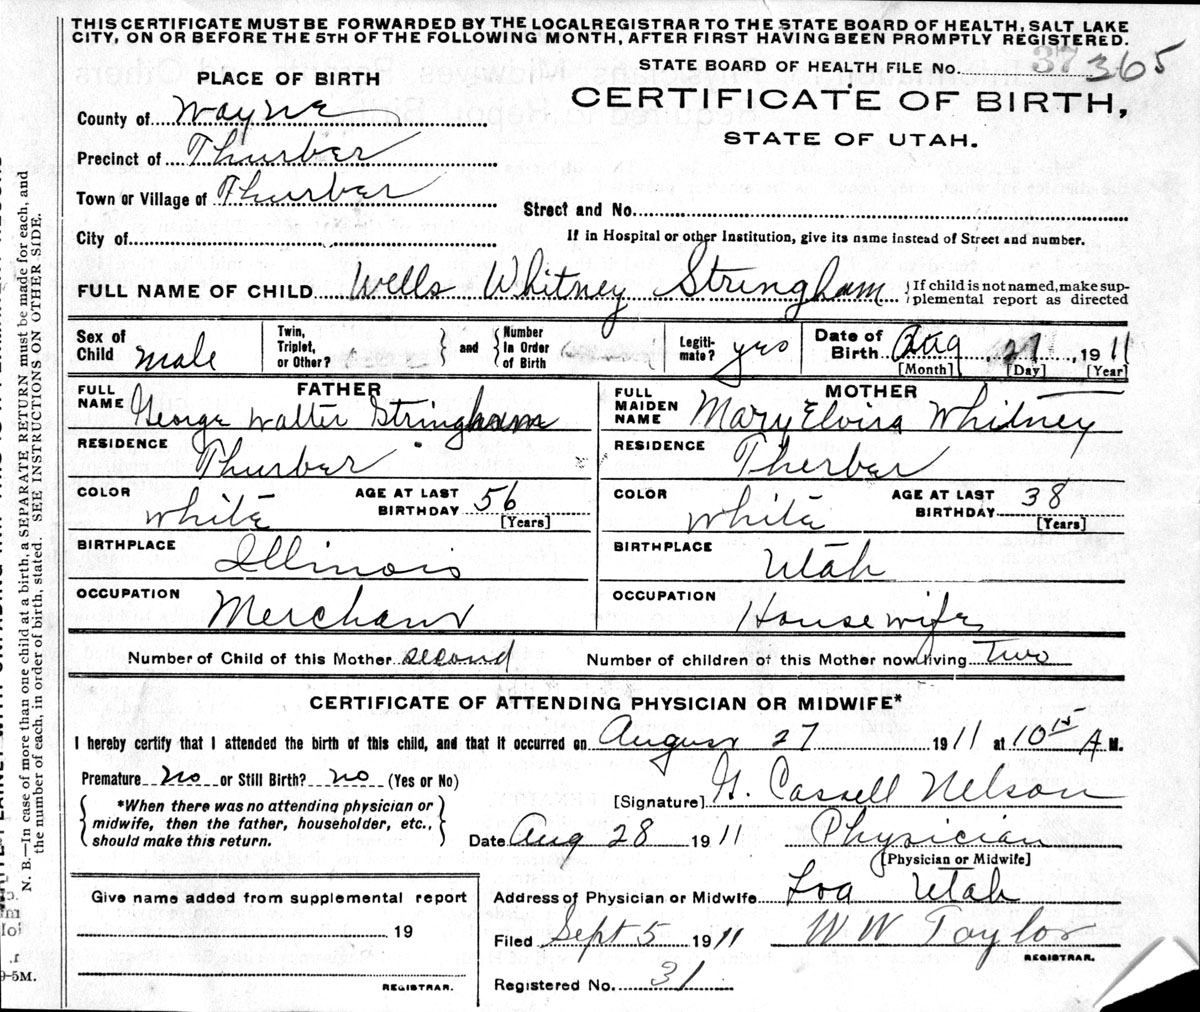 THIS CERTIFICATE MUST BE FORWARDED BY THE LOCAL REGISTRAR TO THE STATE BOARD OF HEALTH, SALT LAKE
CITY, ON OR BEFORE THE 5TH OF THE FOLLOWING MONTH, AFTER FIRST HAVING BEEN PROMPTLY REGISTERED.
STATE BOARD OF HEALTH FILE No. 37 365
PLACE OF BIRTH
CERTIFICATE OF BIRTH,
STATE OF UTAH.
County of Wayne
Precinct of Thurber
Town or Village of Thurber
Street and No.
City of
If in Hospital or other Institution, give its name instead of Street and number.
FULL NAME OF CHILD Wells Whitney Stringham {If child is not named, make supplemental report as directed
Sex of Child male Twin, Triplet, or Other? } and { Number In Order of Birth Legitimate? yes Date of Birth Aug 27, 1911
[Month] [Day] [Year]
FATHER MOTHER
FULL NAME George Walter Stringham FULL MAIDEN NAME Mary Elvira Whitney
RESIDENCE Thurber RESIDENCE Therber
COLOR white AGE AT LAST BIRTHDAY 56 [Years] COLOR white AGE AT LAST BIRTHDAY 38 [Years]
BIRTHPLACE Illinois BIRTHPLACE Utah
OCCUPATION Merchant OCCUPATION Housewife
Number of Child of this Mother second Number of children of this Mother now living Two
CERTIFICATE OF ATTENDING PHYSICIAN OR MIDWIFE*
I hereby certify that I attended the birth of this child, and that it occurred on August 27 1911 at 10 15 A M.
Premature no or Still Birth? no (Yes or No)
[Signature] G. Cassell Nelson
{*When there was no attending physician or
midwife, then the father, householder, etc.,
should make this return.}
Date Aug 28 1911 Physician
[Physician or Midwife]
Give name added from supplemental report
Address of Physician or Midwife Loa Utah
19
Filed Sept 5 1911 W W Taylor
REGISTRAR.
REGISTRAR.
Registered No. 31
N. B.—In case of more than one child at a birth, a SEPARATE RETURN must be made for each, and
the number of each, in order of birth, stated. SEE INSTRUCTIONS ON OTHER SIDE.